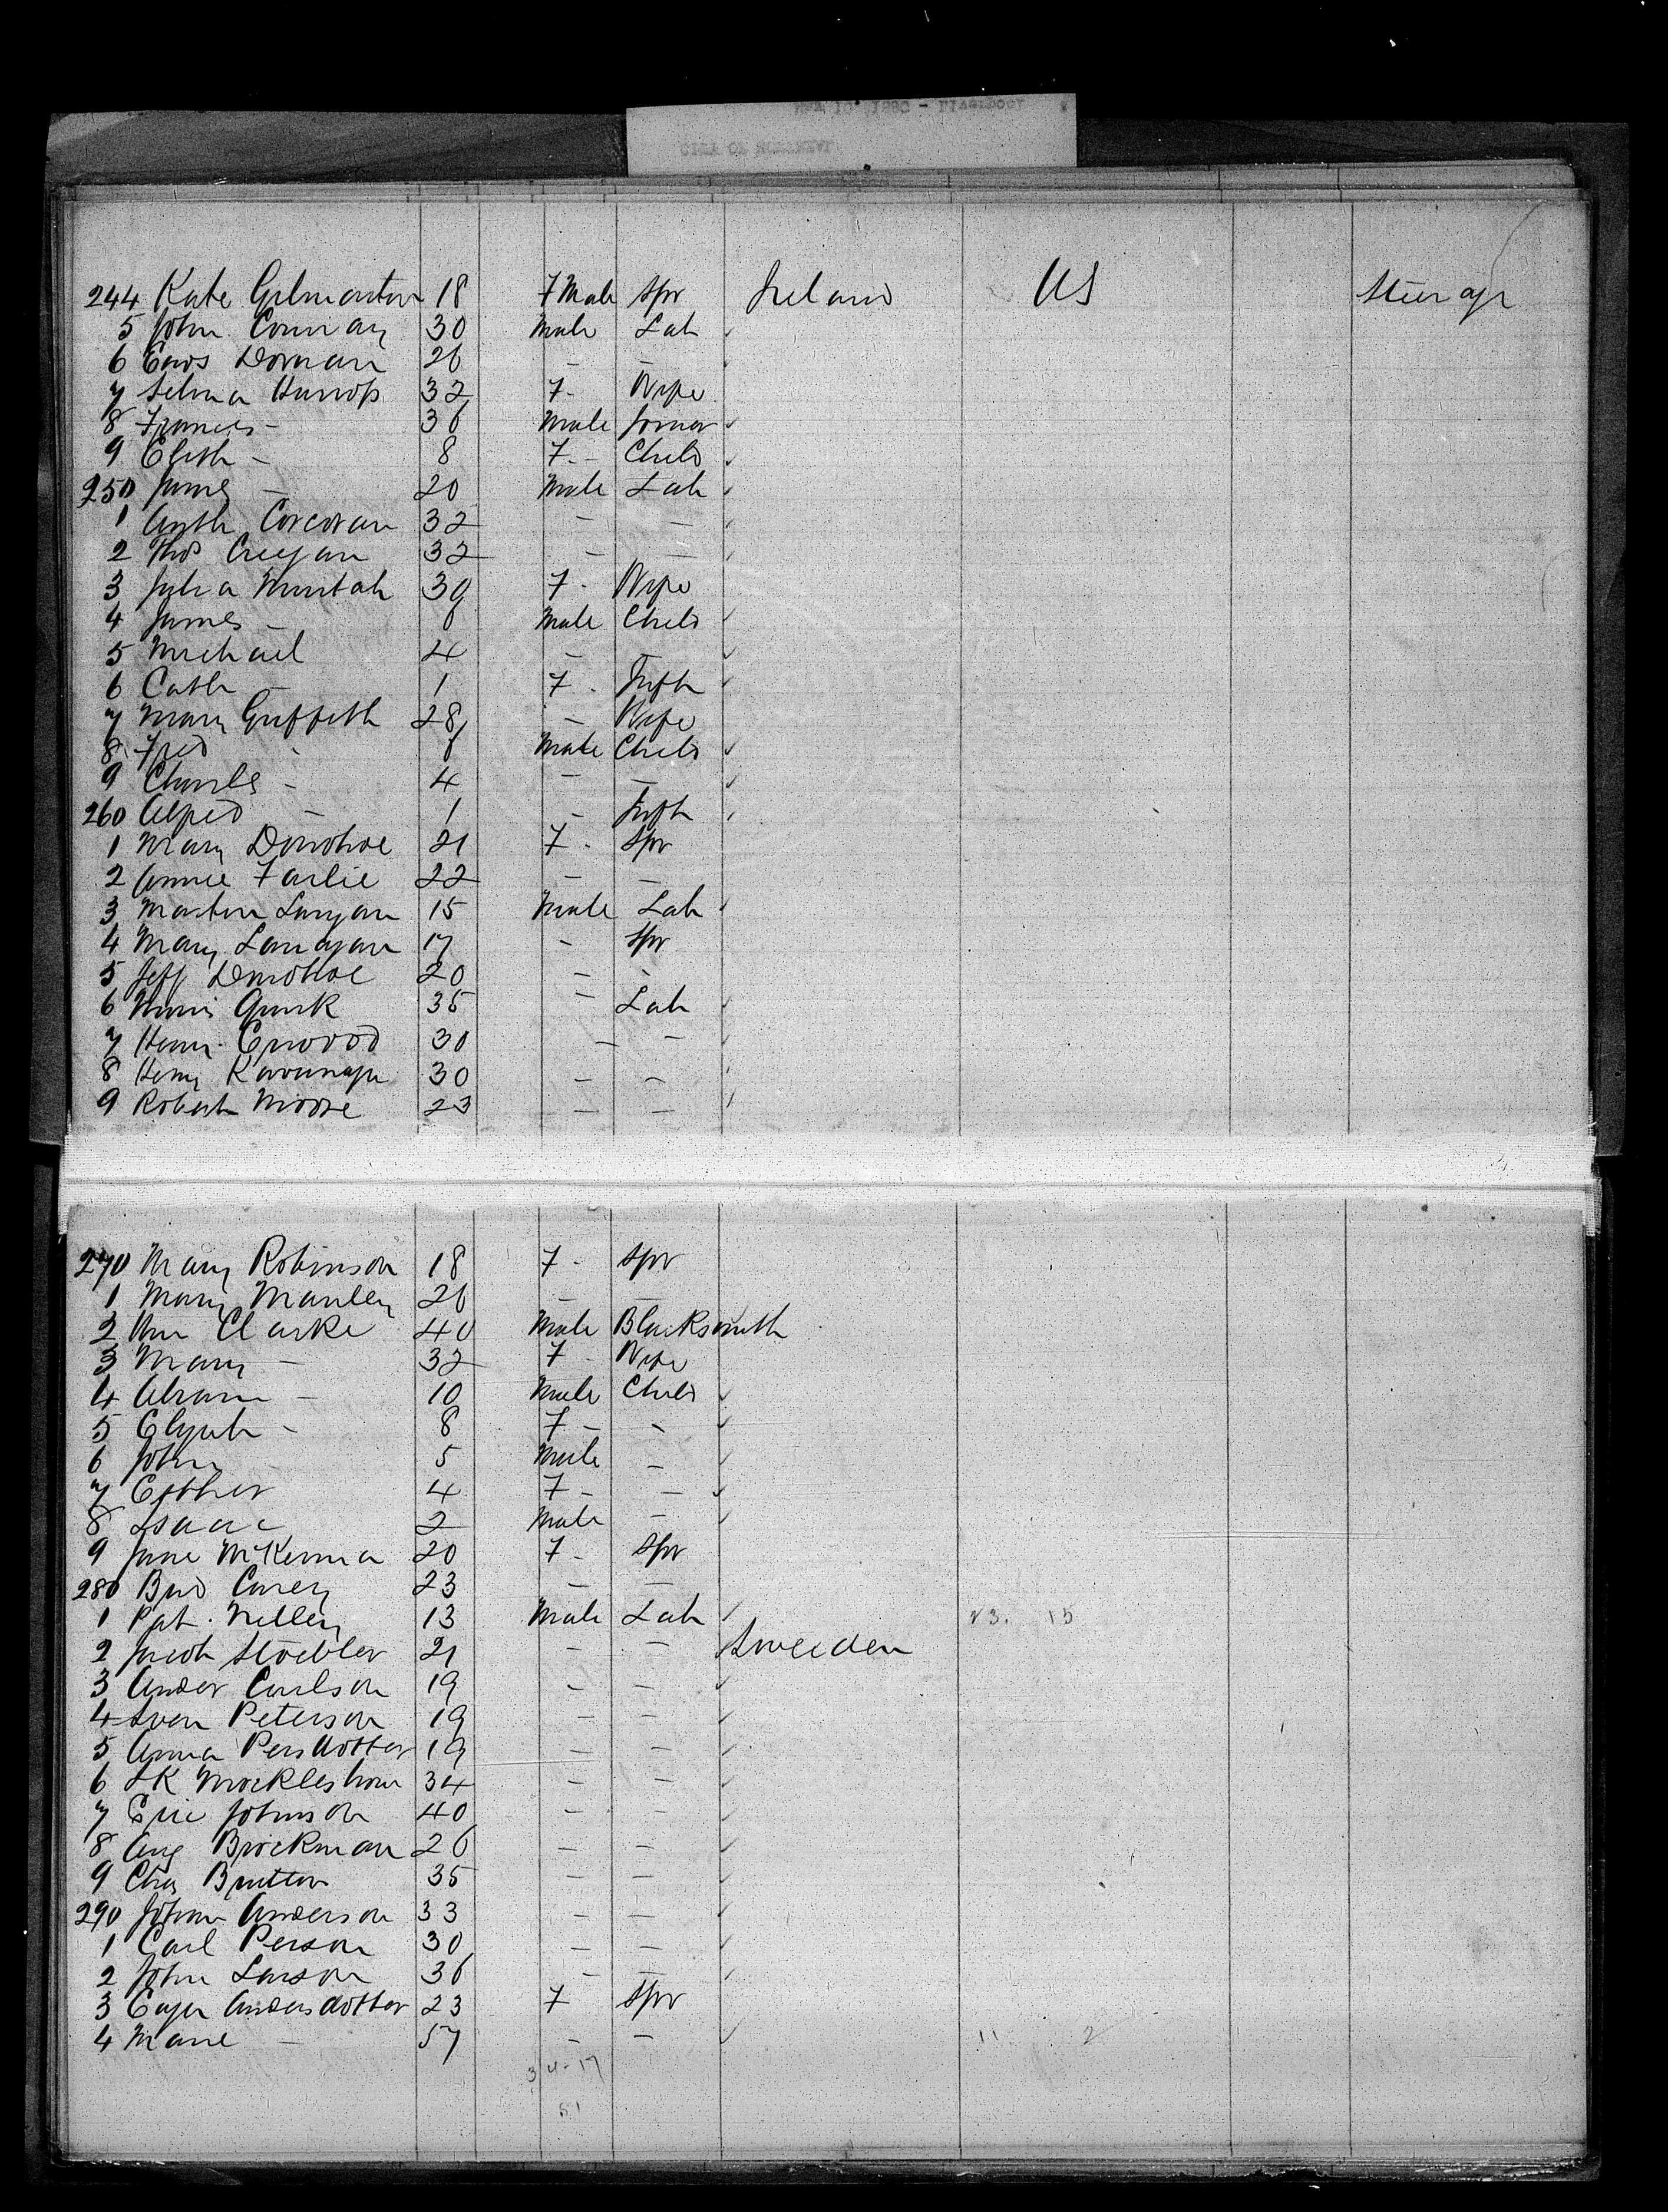 244 Kate Gilmartin 18 Female Spr Ireland US Steerage
5 John Conway 30 Male Lab
6 Dornan 26 - -
7 Selina Harrop 32 F- Wife
8 Frances - 36 Male Farmer
9 Elizth - 8 F- Child
250 James - 20 Male Lab
1 Anth Corcoran 32 - -
2 Thos Creegan 32 - -
3 Julia Murtah 30 F- Wife
4 James - 6 Male Child
5 Michael 4 - -
6 Cath - 1 F- Infth
7 Mary Griffith 28 - Wife
8 Fred - 6 Male Child
9 Charles - 4 - -
260 Alfred - 1 - Infth
1 Mary Donohoe 21 F- Spr
2 Annie Farlie 22 - -
3 Martin Langan 15 Male Lab
4 Mary Lanagan 17 - Spr
5 Donohoe 20 - -
6 Quirk 35 - Lab
7 Henry 30 - -
8 Henry Kavanagh 30 - -
9 Robert Moore 23 - -
270 Mary Robinson 18 F- Spr
1 Mary Manley 26 - -
2 Wm Clarke 40 Male Blacksmith
3 Mary - 32 F- Wife
4 Abram - 10 Male Child
5 Elizth - 8 F- -
6 John 5 Male -
7 Esther 4 F- -
8 Isaac 2 Male -
9 Jane McKenna 20 F- Spr
280 Brid Carey 23 - -
1 Pat. Nelley 13 Male Lab
2 Jacob 21 - - Sweeden
3 Ander Carlson 19 - -
4 Sven Peterson 19 - -
5 Anna Persdotter 19 - -
6 34 - -
7 Eric Johnson 40 - -
8 Aug Brockman 26 - -
9 Chas 35 - -
290 Johan Anderson 33 - -
1 Carl Person 30 - -
2 John Larson 36 - -
3 Andersdotter 23 F Spr
4 Marie - 57 - - 11 2
34-17
51